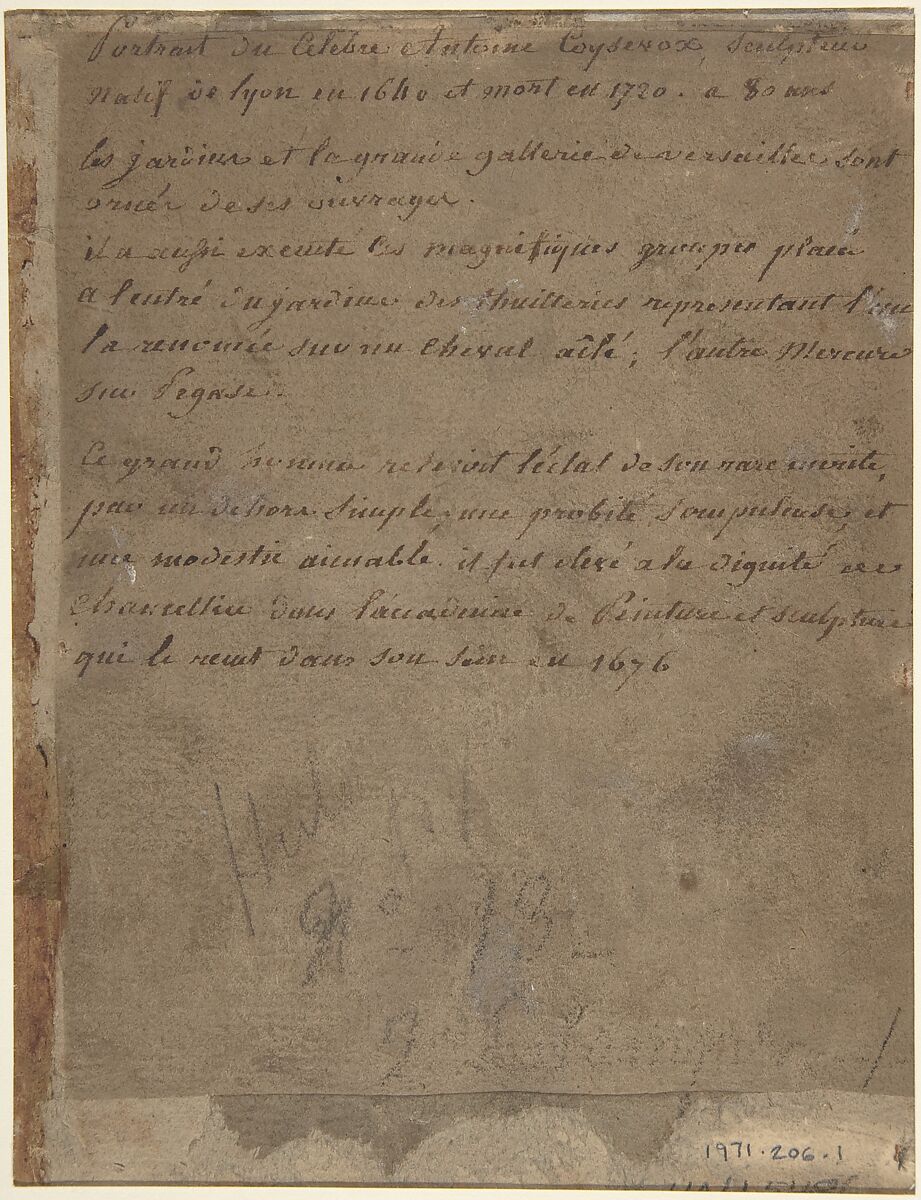 Portrait du Celebre Antoine Coysevox, sculpteur
Natif de lyon en 1640 et mort en 1720. a 80 ans
les jardins et la grande gallerie de versailles sont
ornés de ses ouvrages.
il a aussi executé les magnifiques groupes placés
a l'entré du jardins des thuilleries representant l'un
la renomée sur un Cheval aîlé; l'autre Mercure
sur Pegase.
Ce grand homme relevoit l'éclat de son rare merite,
par un dehors simple, une probité scrupuleuse, et
une modestie aimable. il fut elevé a la dignité de
Chancellier dans l'academie de Peinture et sculpture
qui le recut dans son sein en 1676
1971.206.1